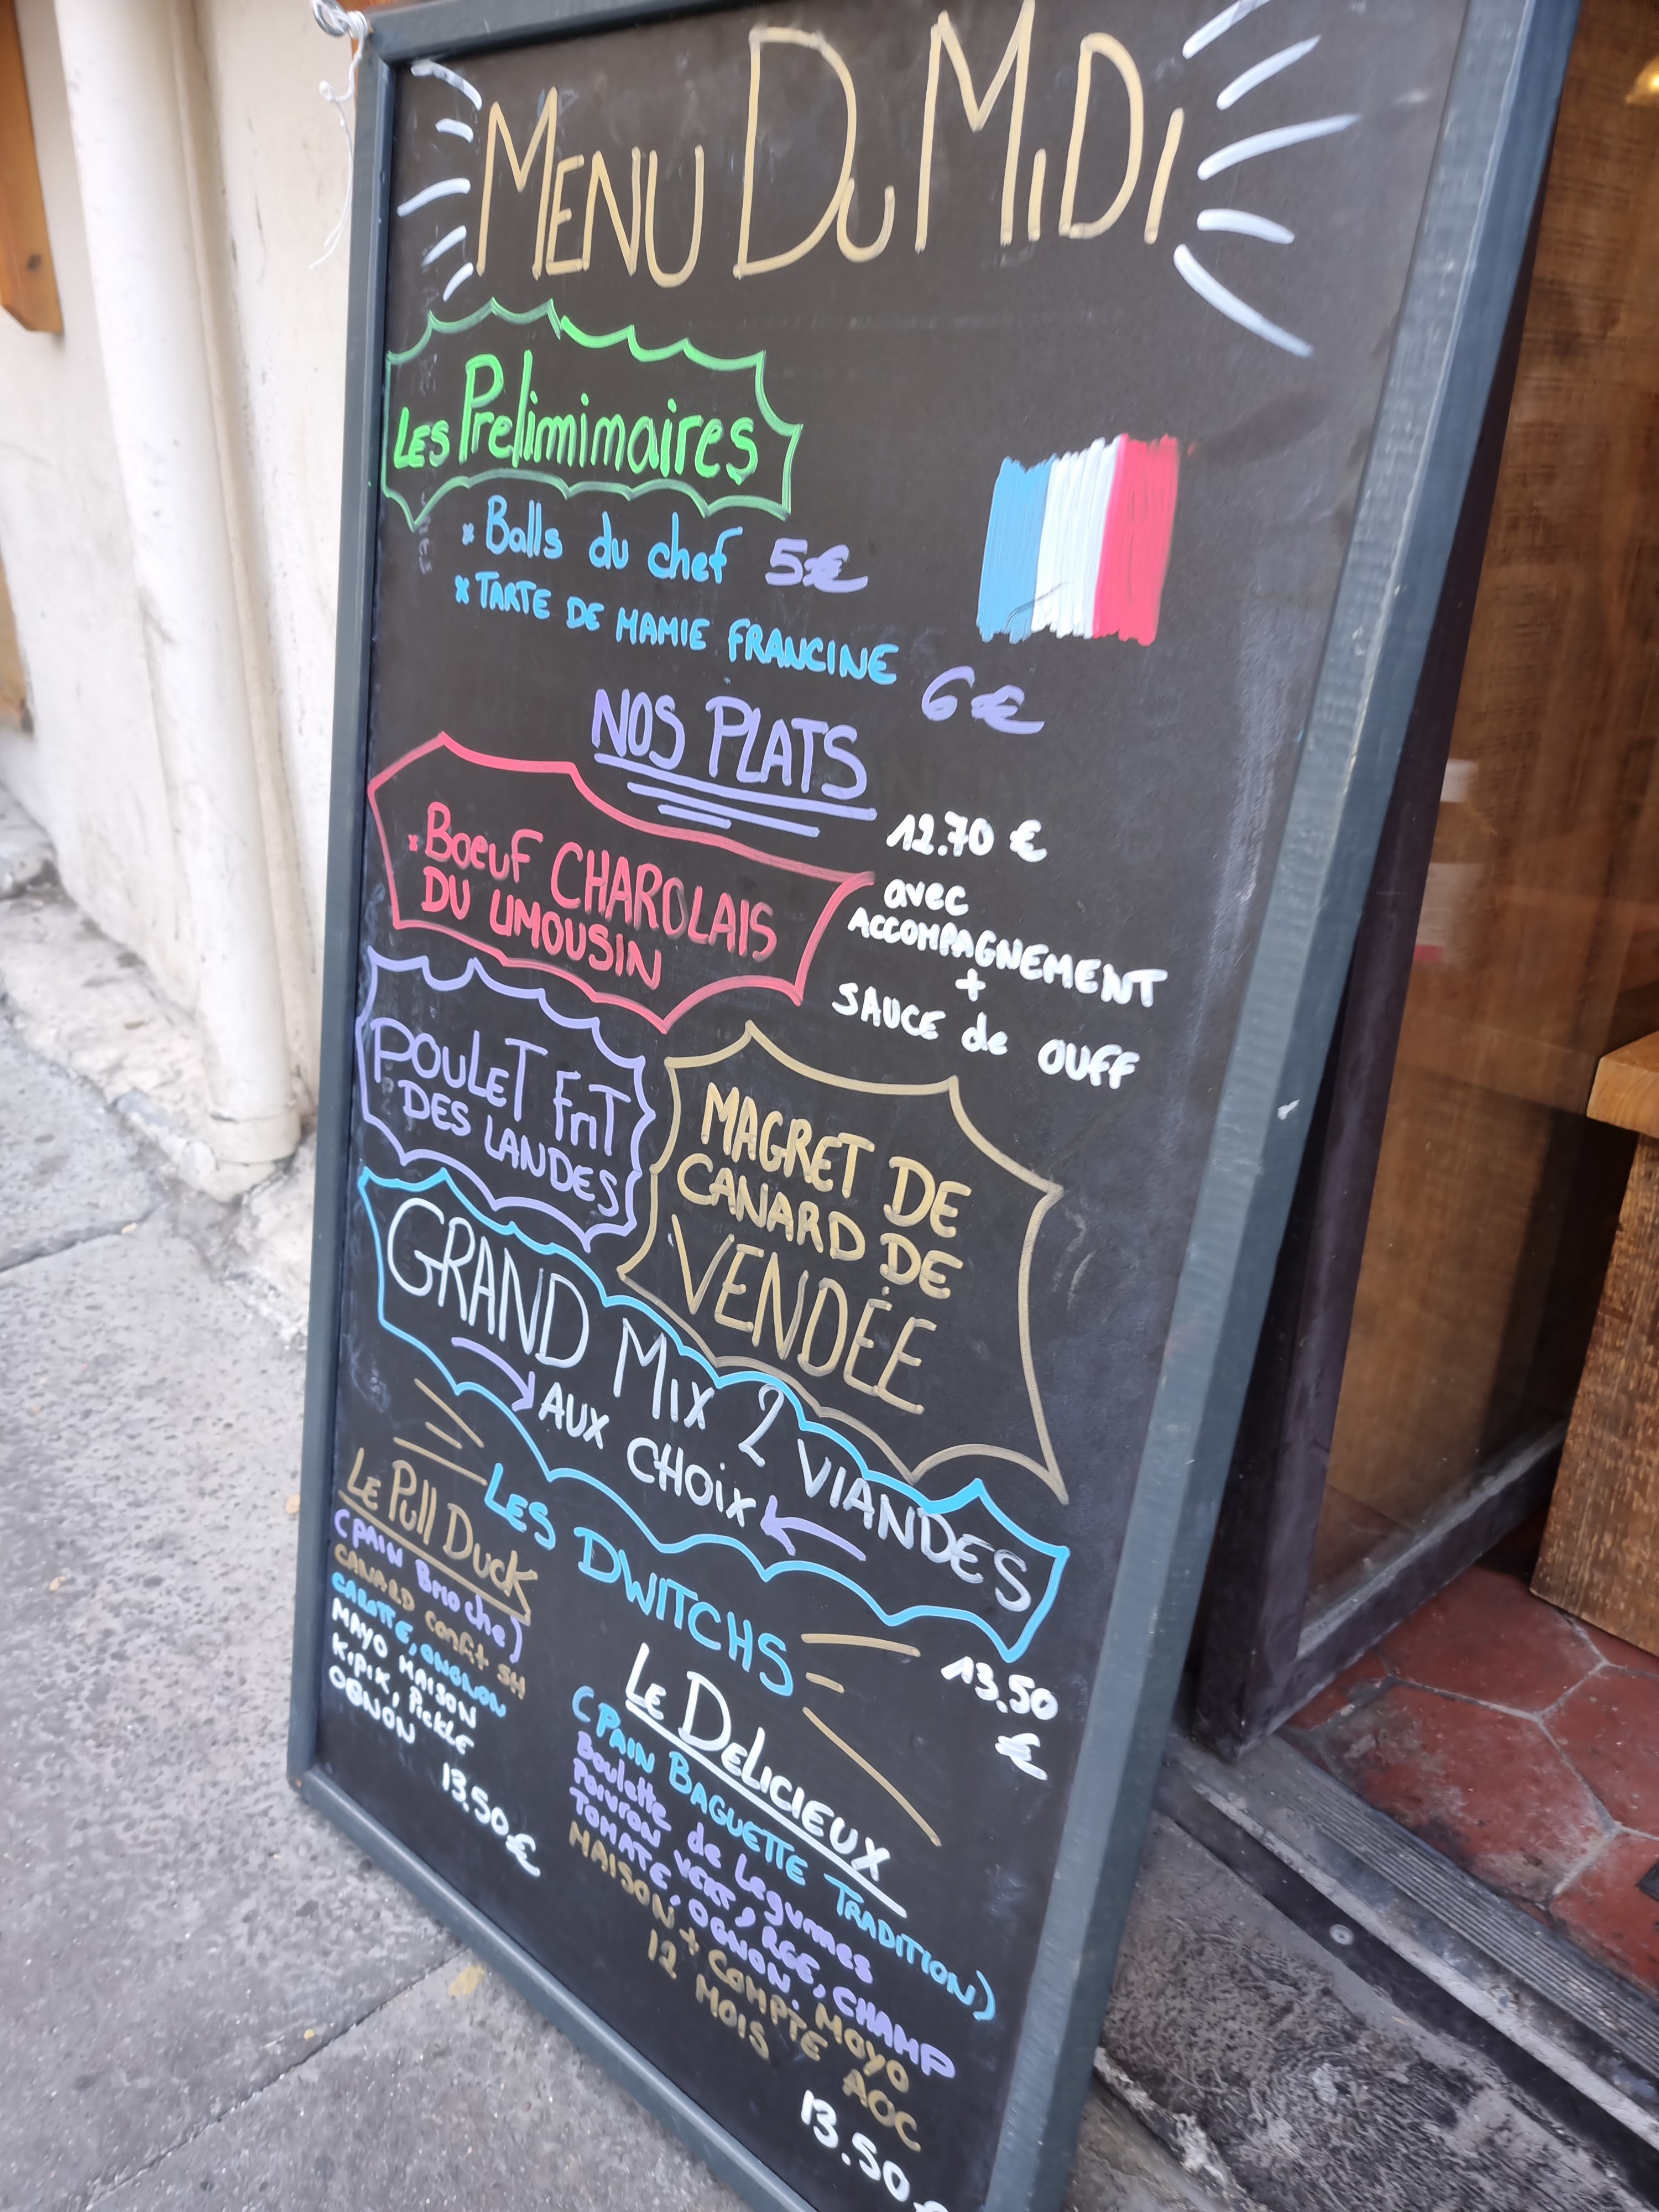 MENU DU MiDi
LES Prelimimaires
* Balls du chef 5€
* TARTE DE MAMIE FRANCINE 6€
NOS PLATS
* BOEUF CHAROLAIS
DU LIMOUSIN
12.70 €
avec
ACCOMPAGNEMENT
+
SAUCE de OUFF
POULET FriT
DES LANDES
MAGRET DE
CANARD DE
VENDÉE
GRAND MiX 2 VIANDES
AUX CHOiX
13.50
€
LES DWITCHS
LE Pull Duck
(PAIN Brioche)
CANARD confit 5H
CAROTTE, ONGNON
MAYO MAISON
KIPIK, Pickle
OGNON
13.50€
LE DELICIEUX
(PAIN BAGUETTE TRADITION)
Boulette de Legumes
Poivron VERT, RGE, CHAMP
TOMATE, OGNON. MOYO
MAISON + COMPTE AOC
12 MOIS
13.50€